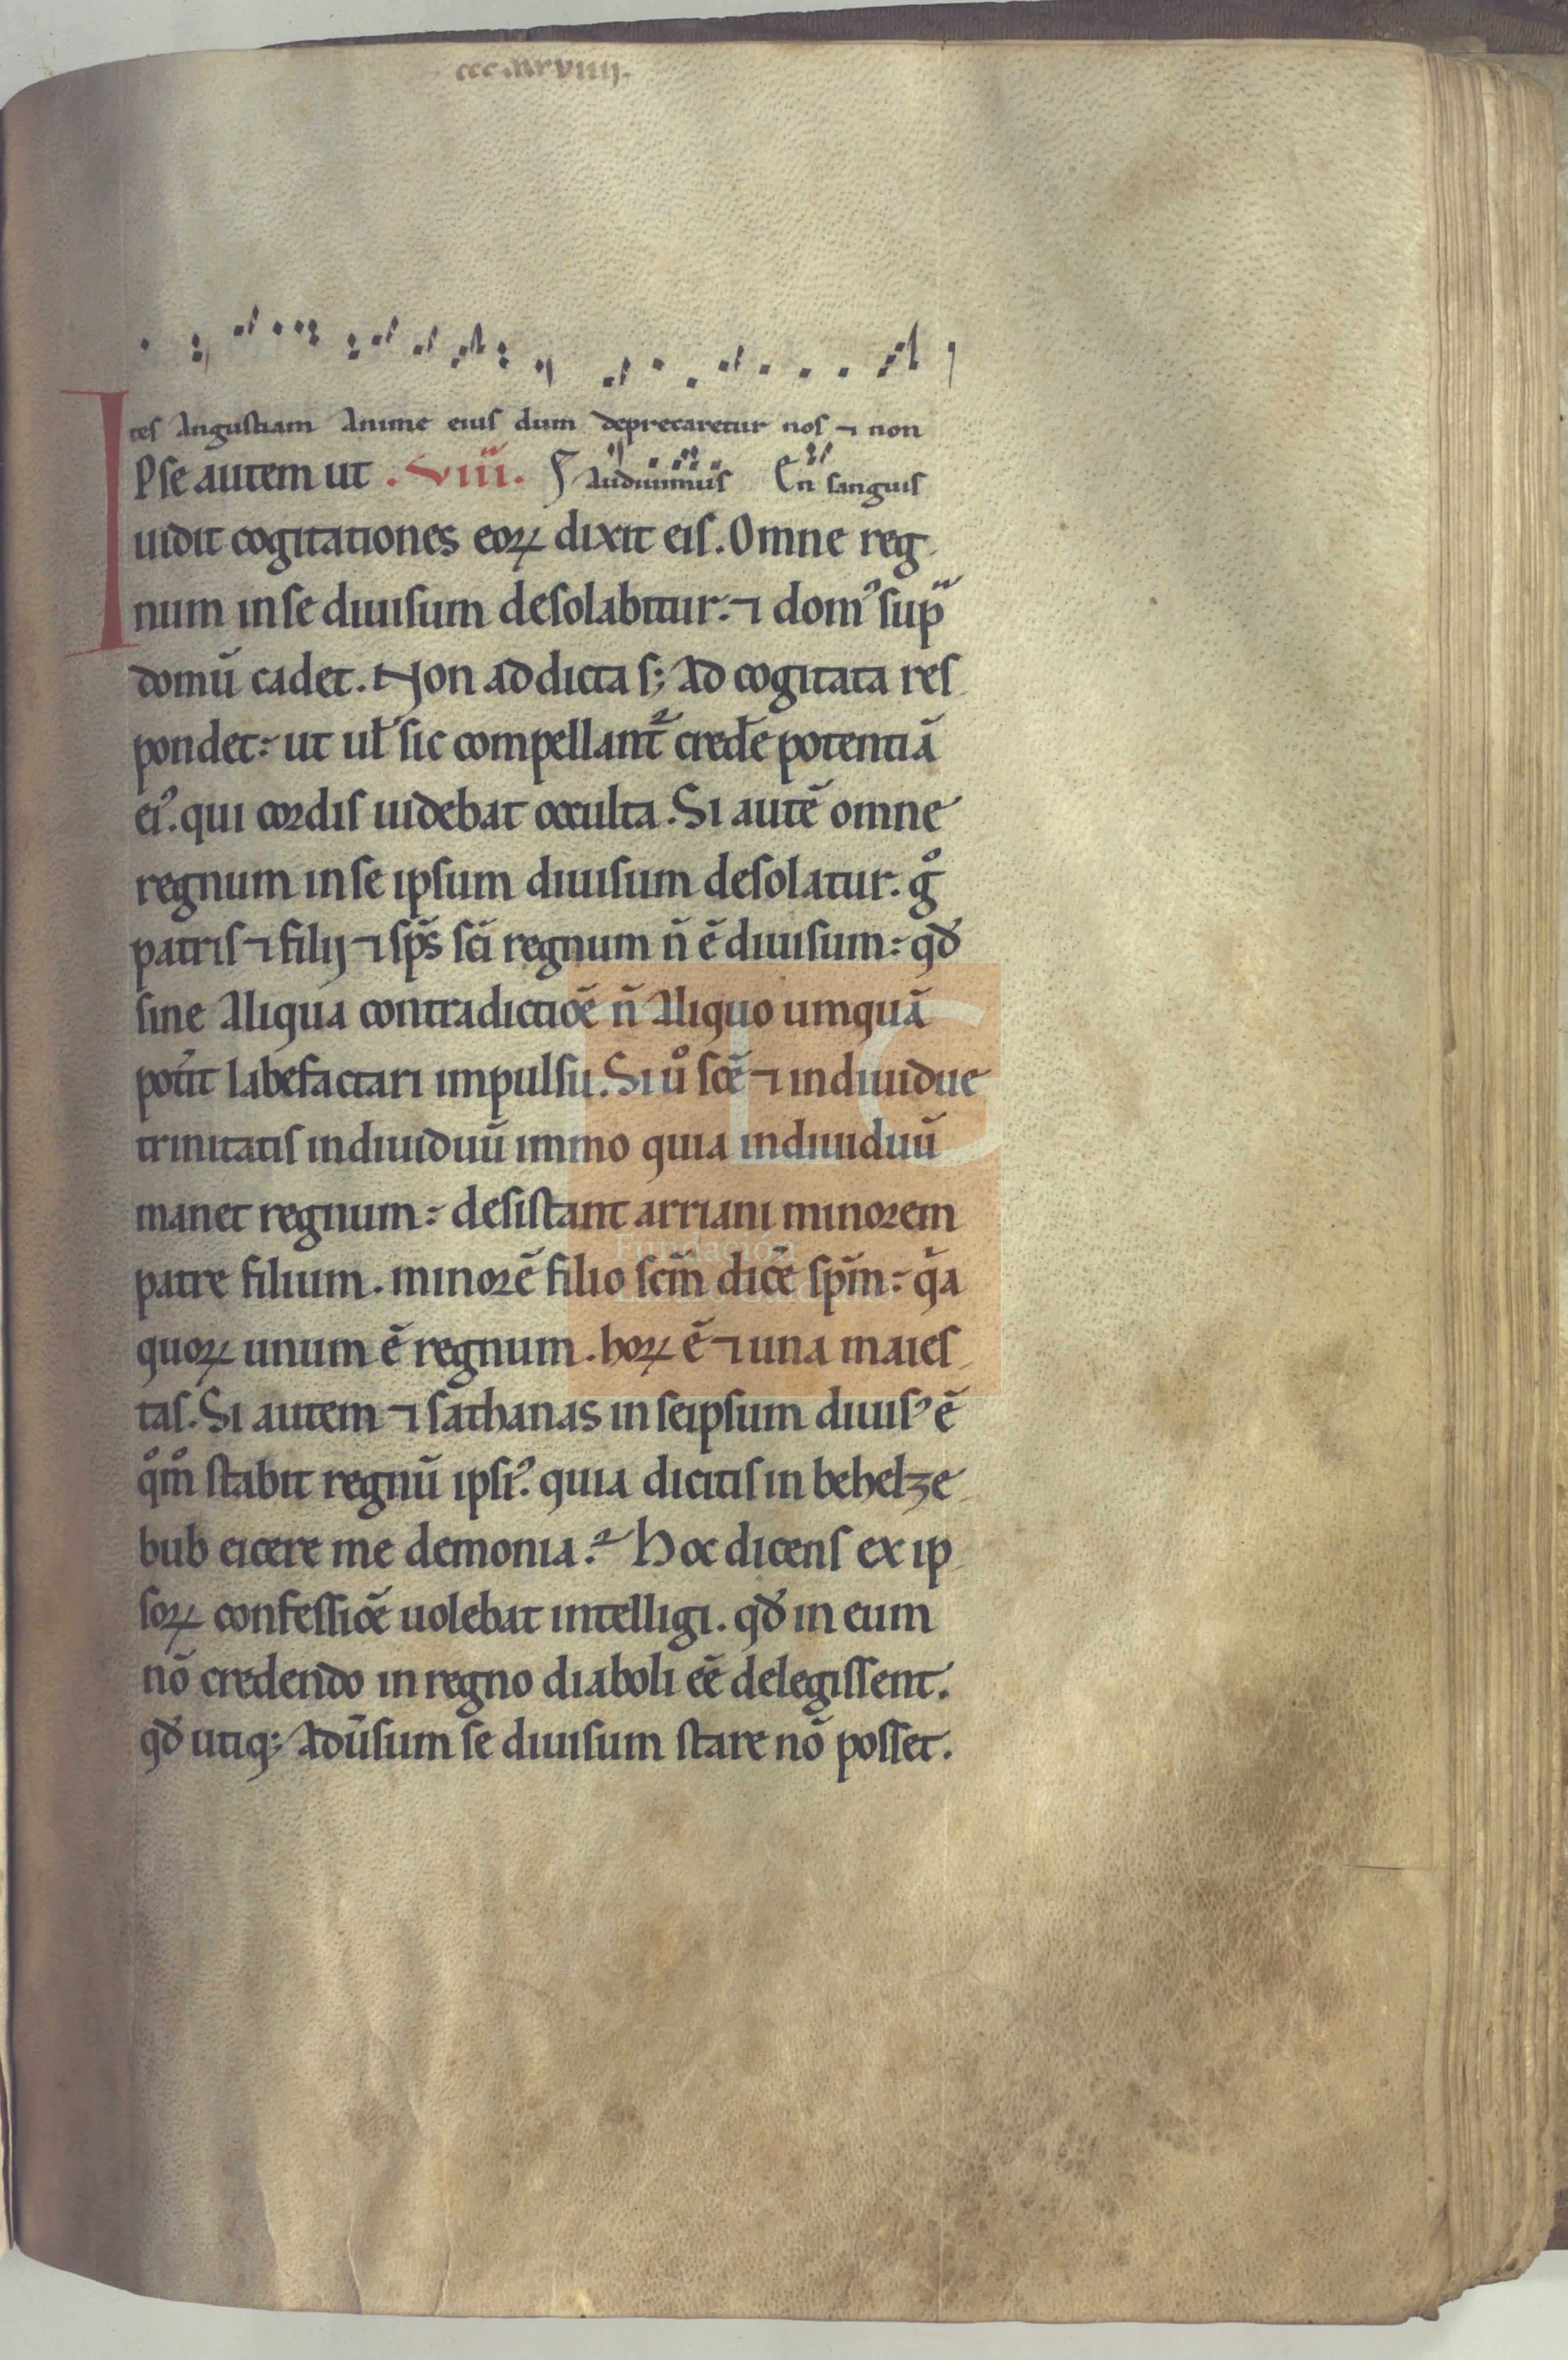 tes angustiam anime eius dum deprecaretur nos ⁊ non
Ipse autem ut .viii. audiuimus En sanguis
uidit cogitationes eoꝝ dixit eis. Omne reg
num in se diuisum desolabitur: ⁊ domꝰ sup
domū cadet. Non ad dicta s; ad cogitata res
pondet: ut ul̓ sic compellant᷑ cređe potentiā
eiꝰ. qui cordis uidebat occulta. Si autē omne
regnum in se ipsum diuisum desolatur. gͦ
patris ⁊ filij ⁊ sp̄s sc̄i regnum n̄ ē diuisum: qđ
sine aliqua contradictiōe n̄ aliquo umquā
pot̓it labefactari impulsu. Si uͦ sc̄e ⁊ indiuidue
trinitatis indiuiduū immo quia indiuiduū
manet regnum: desistant arriani minorem
patre filium. minorē filio sc̄m dic̄e sp̄m: qa
quoꝝ unum ē regnum. hoꝝ ē ⁊ una maies
tas. Si autem ⁊ sathanas in seipsum diuisꝰ ē
qͦmͦ stabit regnū ipsiꝰ. quia dicitis in behelze
bub eicere me demonia? Hoc dicens ex ip
soꝝ confessiōe uolebat intelligi. qđ in eum
nō credendo in regno diaboli eē delegissent.
qđ utiq; adūsum se diuisum stare nō posset.
Fundación